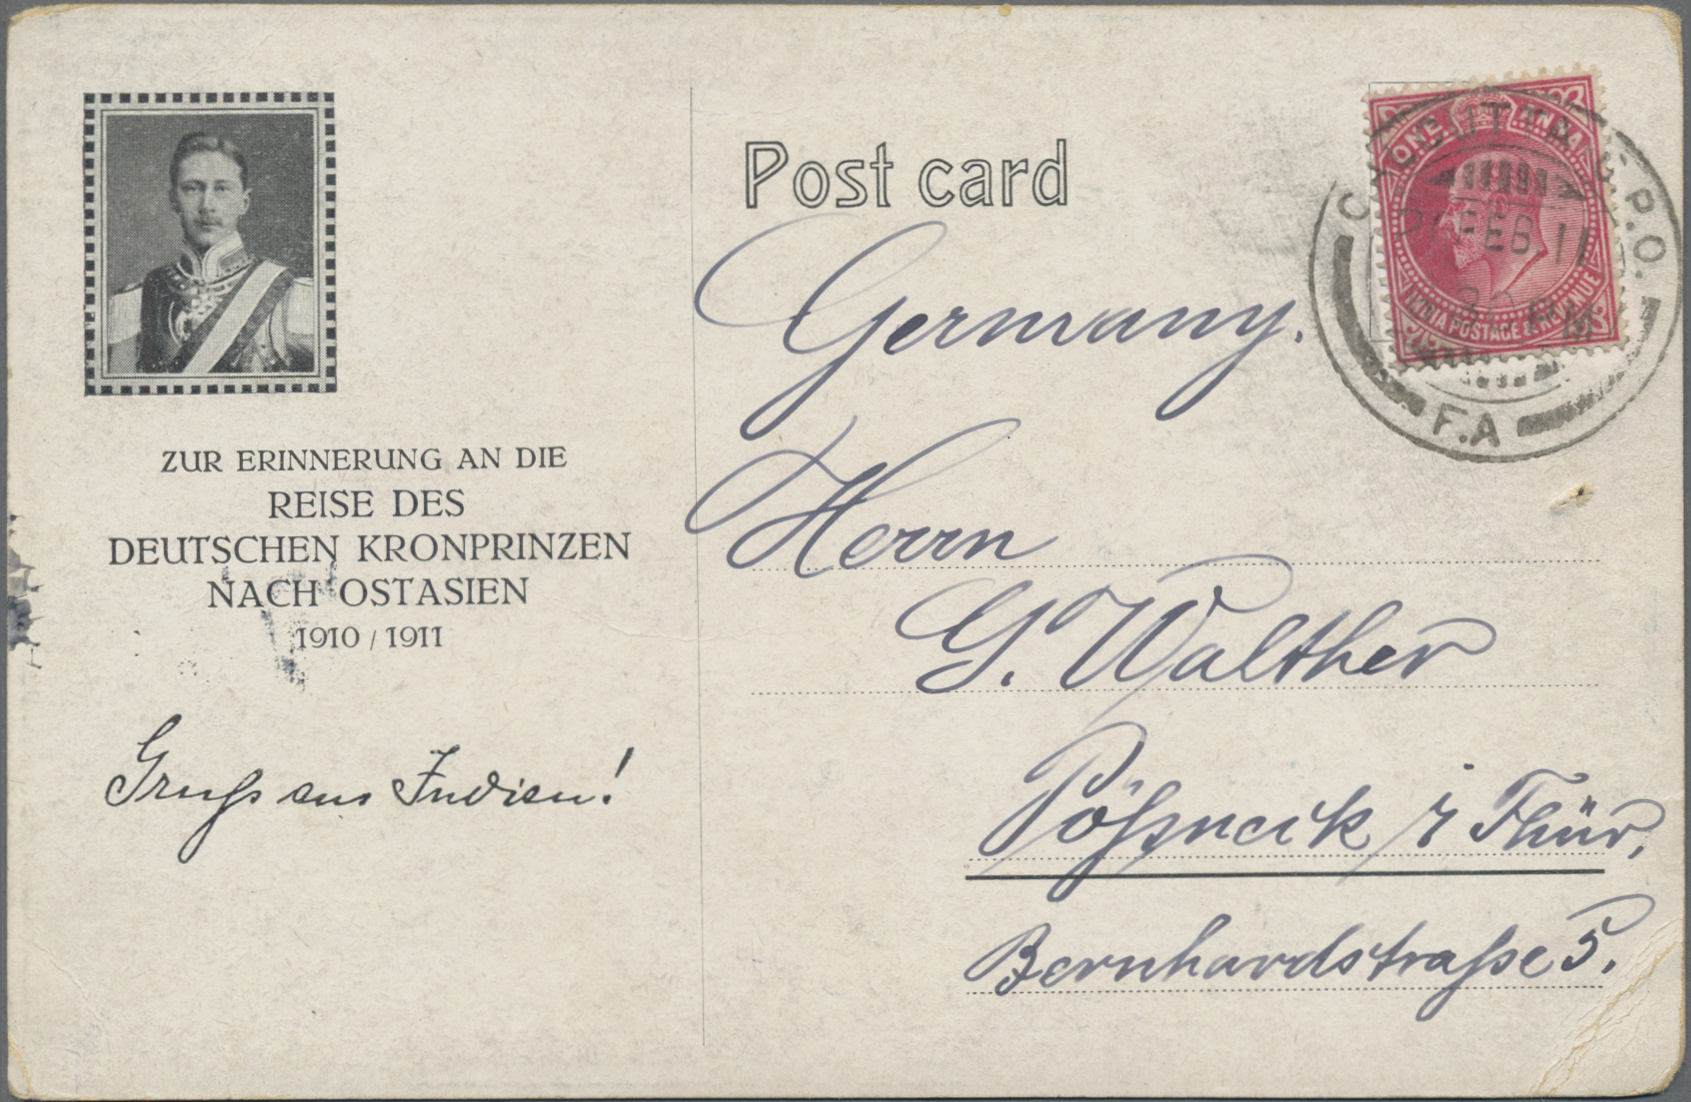 ZUR ERINNERUNG AN DIE
REISE DES
DEUTSCHEN KRONPRINZEN
NACH OSTASIEN
1910 / 1911
Gruß aus Indien!
Post card
ONE ANNA
INDIA POSTAGE & REVENUE
CALCUTTA G.P.O.
FEB 11
PM
F.A
Germany.
Herrn
G. Walther
Pößneck i Thür.
Bernhardstraße 5.